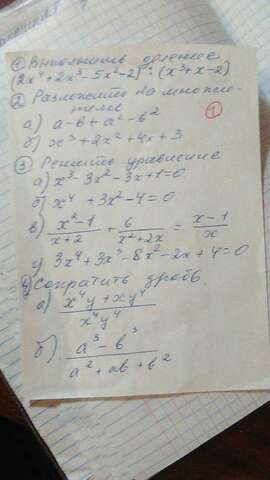 ① Выполнить деление
(2x⁴+2x³-5x²-2) : (x³+x-2)
② Разложить на множи-
тели
①
а) a-b+a²-b²
б) x³+2x²+4x+3
③ Решить уравнение
а) x³-3x²-3x+1=0
б) x⁴+3x²-4=0
в) (x²-1)/(x+2) - 6/(x²+2x) = (x-1)/x
г) 3x⁴+3x³-8x²-2x+4=0
④ Сократить дробь
а) (x⁴y+xy⁴)/(x⁴y⁴)
б) (a³-b³)/(a²+ab+b²)